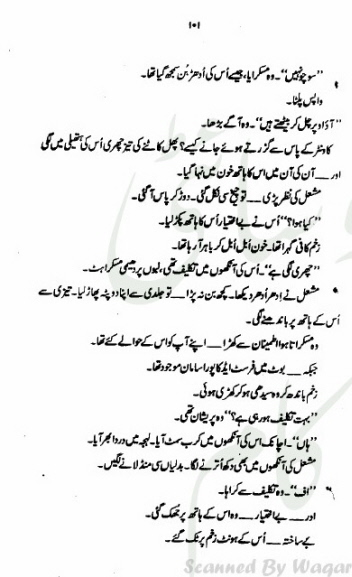 ۱۰۱
"سوچو نہیں"۔ وہ مسکرایا، جیسے اُس کی اُدھیڑ بُن سمجھ گیا تھا۔
واپس پلٹا۔
"آؤ اوپر چل کر بیٹھتے ہیں"۔ وہ آگے بڑھا۔
کاؤنٹر کے پاس سے گزرتے ہوئے جانے کیسے؟ پھل کاٹنے کی تیز چھری اُس کی ہتھیلی میں لگی
اور ـــ آن کی آن میں اس کا ہاتھ خون میں نہا گیا۔
مشعل کی نظر پڑی ـــ تو چیخ سی نکل گئی۔ دوڑ کر پاس آ گئی۔
"کیا ہوا؟" اُس نے بے اختیار اُس کا ہاتھ پکڑ لیا۔
زخم کافی گہرا تھا۔ خون اُبل اُبل کر باہر آ رہا تھا۔
"چھری لگی ہے"۔ اُس کی آنکھوں میں تکلیف تھی، لبوں پر دھیمی مسکراہٹ۔
مشعل نے اِدھر اُدھر دیکھا۔ کچھ بن نہ پڑا ـــ تو جلدی سے اپنا دوپٹہ پھاڑ لیا۔ تیزی سے
اُس کے ہاتھ پر باندھنے لگی۔
وہ مسکراتا ہوا اطمینان سے کھڑا ـــ اپنے آپ کو اس کے حوالے کئے تھا۔
جبکہ ـــ بوٹ میں فرسٹ ایڈ کا پورا سامان موجود تھا۔
زخم باندھ کر وہ سیدھی ہو کر کھڑی ہوئی۔
"بہت تکلیف ہو رہی ہے؟" وہ پریشان تھی۔
"ہاں"۔ اچانک اس کی آنکھوں میں کرب سمٹ آیا۔ لہجہ میں درد اُبھر آیا۔
مشعل کی آنکھوں میں بھی دکھ اُترنے لگا۔ بدلیاں سی منڈلانے لگیں۔
"اف"۔ وہ تکلیف سے کراہا۔
اور ـــ بے اختیار ـــ وہ اس کے ہاتھ پر جھک گئی۔
بے ساختہ ـــ اُس کے ہونٹ زخم پر ٹک گئے۔
Scanned By Waqar